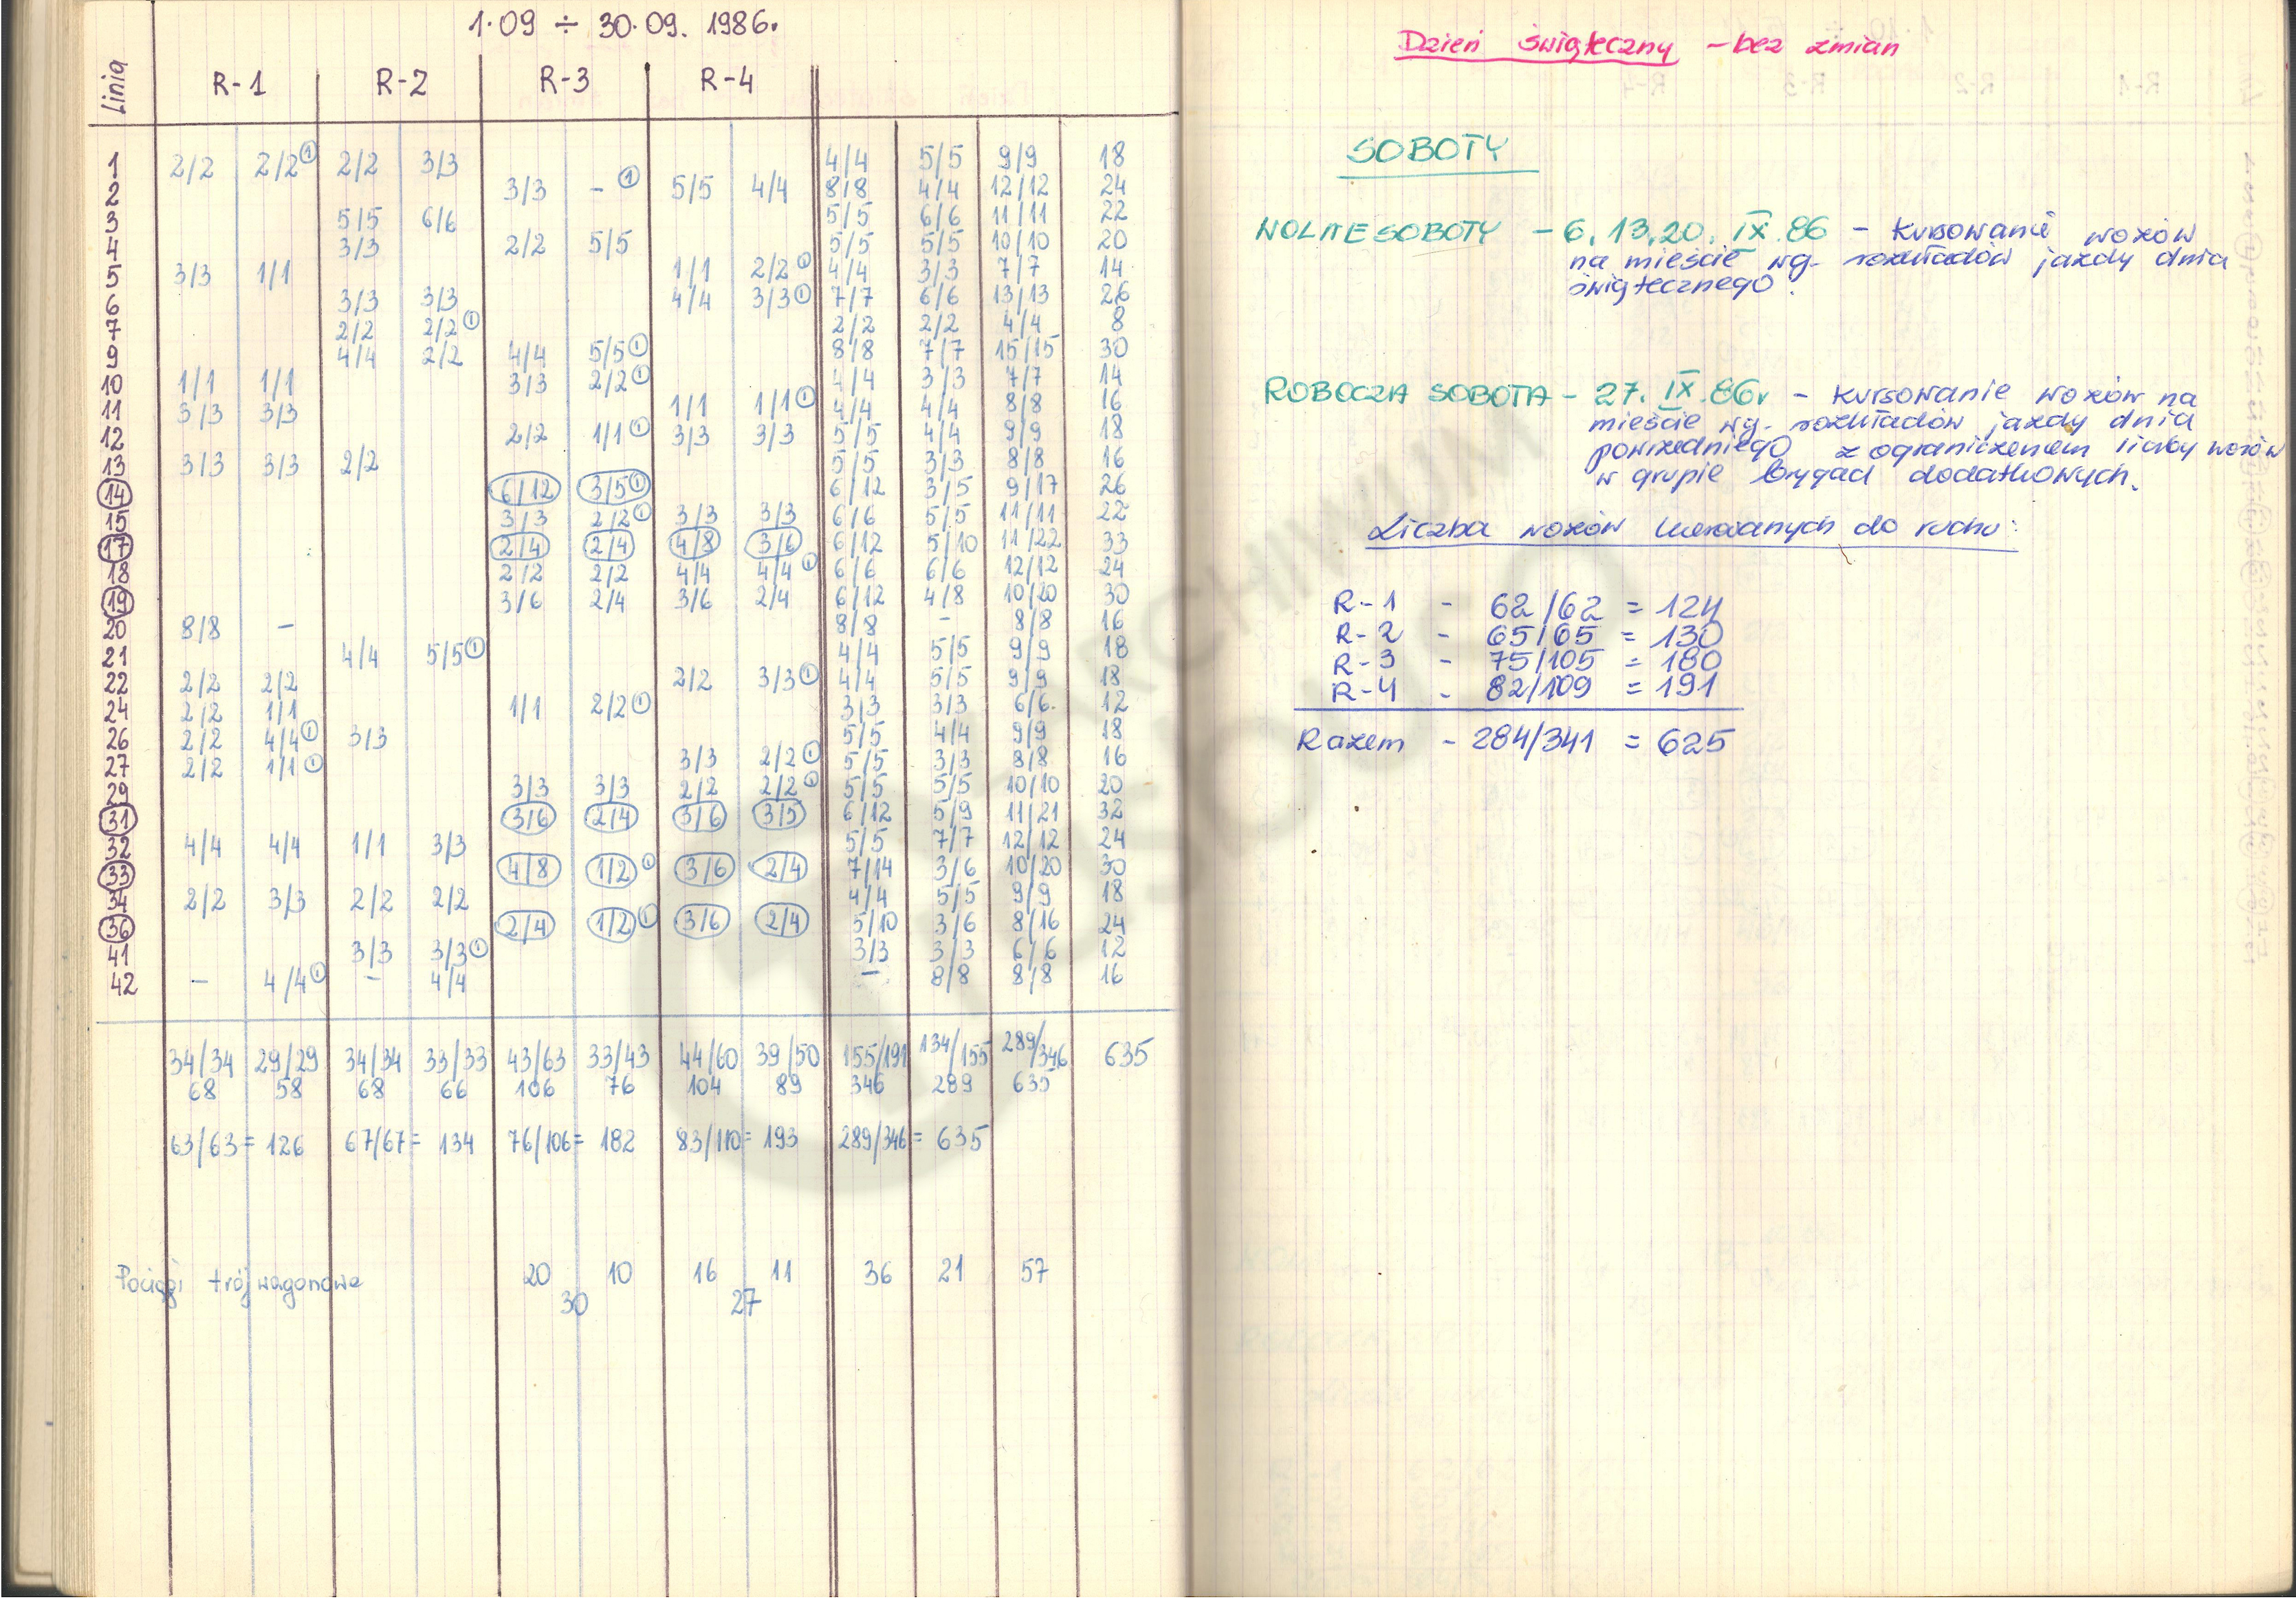 1.09 ÷ 30.09. 1986.
Linia R-1 R-2 R-3 R-4
1 2/2 2/2 ① 2/2 3/3 4/4 5/5 9/9 18
2 3/3 - ① 5/5 4/4 8/8 4/4 12/12 24
3 5/5 6/6 5/5 6/6 11/11 22
4 3/3 2/2 5/5 5/5 5/5 10/10 20
5 3/3 1/1 1/1 2/2 ① 4/4 3/3 7/7 14
6 3/3 3/3 4/4 3/3 ① 7/7 6/6 13/13 26
7 2/2 2/2 ① 2/2 2/2 4/4 8
9 4/4 2/2 4/4 5/5 ① 8/8 7/7 15/15 30
10 1/1 1/1 3/3 2/2 ① 4/4 3/3 7/7 14
11 3/3 3/3 1/1 1/1 ① 4/4 4/4 8/8 16
12 2/2 1/1 ① 3/3 3/3 5/5 4/4 9/9 18
13 3/3 3/3 2/2 5/5 3/3 8/8 16
14 6/12 3/5 ① 6/12 3/5 9/17 26
15 3/3 2/2 ① 3/3 3/3 6/6 5/5 11/11 22
17 2/4 2/4 4/8 3/6 6/12 5/10 11/22 33
18 2/2 2/2 4/4 4/4 ① 6/6 6/6 12/12 24
19 3/6 2/4 3/6 2/4 6/12 4/8 10/20 30
20 8/8 - 8/8 - 8/8 16
21 4/4 5/5 ① 4/4 5/5 9/9 18
22 2/2 2/2 2/2 3/3 ① 4/4 5/5 9/9 18
24 2/2 1/1 1/1 2/2 ① 3/3 3/3 6/6. 12
26 2/2 4/4 ① 3/3 5/5 4/4 9/9 18
27 2/2 1/1 ① 3/3 2/2 ① 5/5 3/3 8/8 16
29 3/3 3/3 2/2 2/2 ① 5/5 5/5 10/10 20
31 3/6 2/4 3/6 3/5 6/12 5/9 11/21 32
32 4/4 4/4 1/1 3/3 5/5 7/7 12/12 24
33 4/8 1/2 ① 3/6 2/4 7/14 3/6 10/20 30
34 2/2 3/3 2/2 2/2 4/4 5/5 9/9 18
36 2/4 1/2 ① 3/6 2/4 5/10 3/6 8/16 24
41 3/3 3/3 ① 3/3 3/3 6/6 12
42 - 4/4 ① - 4/4 - 8/8 8/8 16
34/34 29/29 34/34 33/33 43/63 33/43 44/60 39/50 155/191 134/155 289/346 635
68 58 68 66 106 76 104 89 346 289 635
63/63 = 126 67/67 = 134 76/106 = 182 83/110 = 193 289/346 = 635
Pociągi trójwagonowe 20 10 16 11 36 21 57
30 27
Dzień świąteczny - bez zmian
SOBOTY
WOLNE SOBOTY - 6, 13, 20. IX. 86 - kursowanie wozów
na mieście wg. rozkładów jazdy dnia
świątecznego.
ROBOCZA SOBOTA - 27. IX. 86r - kursowanie wozów na
mieście wg. rozkładów jazdy dnia
powszedniego z ograniczeniem liczby wozów
w grupie brygad dodatkowych.
Liczba wozów kierowanych do ruchu:
R-1 - 62/62 = 124
R-2 - 65/65 = 130
R-3 - 75/105 = 180
R-4 - 82/109 = 191
Razem - 284/341 = 625